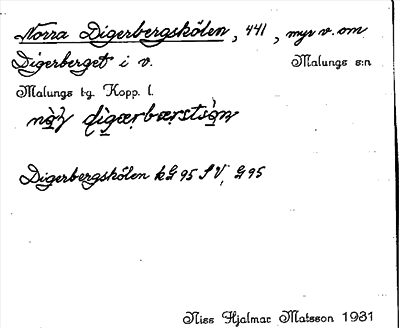 Norra Digerbergskölen, 441, myr v. om
Digerberget i v. Malungs s:n
Malungs tg. Kopp. l.
Digerbergskölen kG 95 SV, G 95
Niss Hjalmar Matsson 1931